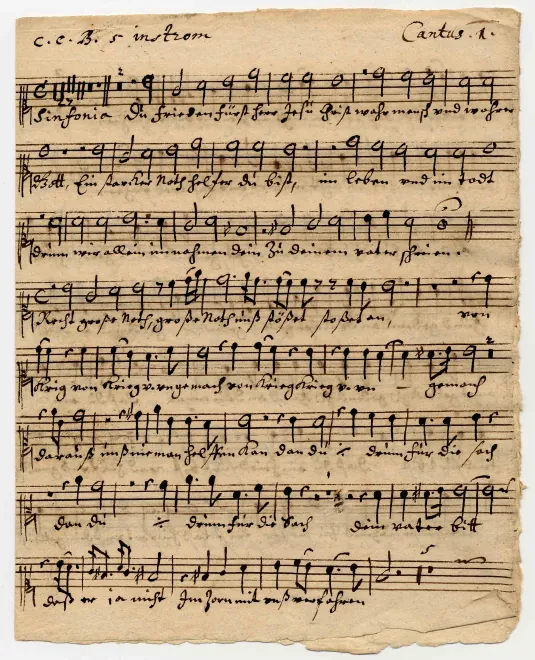 C. C. B. 5 instrom Cantus. 1.
Sinfonia Du friedenfürst herr Jesu Christ wahr mensch und wahrer
Gott, Ein starcker Nothhelfer du bist, im leben und im todt
drum wir allein im nahmen dein zu deinem vater schreien.
Recht große Noth, große Noth uns stößet stoßet an, von
Krieg von Krieg u. ungemach von Krieg Krieg u. un - gemach
darauß unß nieman helffen kan dan du ∻ drum für die sach
dan du ∻ drum für die Sach dein vater bitt
daß er ia nicht Im Zorn mit unß verfahren